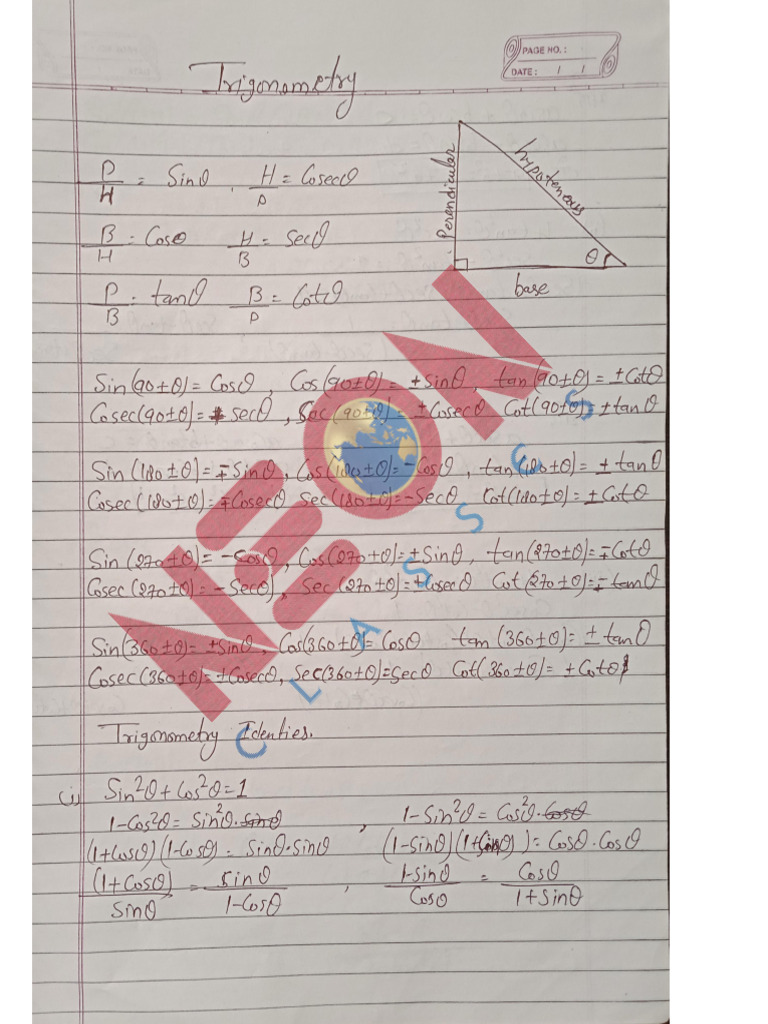 PAGE NO. :
DATE : / /
Trigonometry
P/H = Sinθ , H/P = Cosecθ
B/H = Cosθ H/B = Secθ
P/B = tanθ B/P = Cotθ
Perendicular
hypoteneus
θ
base
Sin(90±θ) = Cosθ , Cos(90±θ) = ±sinθ , tan(90±θ) = ±Cotθ
Cosec(90±θ) = secθ , Sec(90±θ) = ±Cosecθ Cot(90±θ) = ±tanθ
Sin(180±θ) = ∓Sinθ , Cos(180±θ) = -Cosθ , tan(180±θ) = ±tanθ
Cosec(180±θ) = ∓Cosecθ Sec(180±θ) = -Secθ Cot(180±θ) = ±Cotθ
Sin(270±θ) = -Cosθ , Cos(270±θ) = ±Sinθ , tan(270±θ) = ∓Cotθ
Cosec(270±θ) = -Secθ) , Sec(270±θ) = ±Cosecθ Cot(270±θ) = ∓tanθ
Sin(360±θ) = ±Sinθ , Cos(360±θ) = Cosθ tan(360±θ) = ±tanθ
Cosec(360±θ) = ±Cosecθ, Sec(360±θ) = Secθ Cot(360±θ) = ±Cotθ
Trigonometry Identies.
(i) Sin²θ + Cos²θ = 1
1-Cos²θ = Sin²θ.sinθ , 1-Sin²θ = Cos²θ.Cosθ
(1+Cosθ)(1-Cosθ) = Sinθ.Sinθ (1-Sinθ)(1+Sinθ) = Cosθ.Cosθ
(1+Cosθ)/Sinθ = Sinθ/1-Cosθ , 1-Sinθ/Cosθ = Cosθ/1+Sinθ
NEON
CLASSES